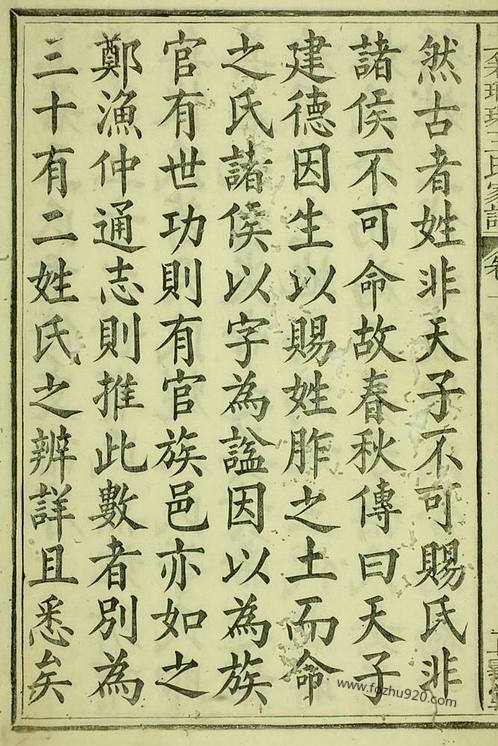 然古者姓非天子不可賜氏非
諸侯不可命故春秋傳曰天子
建德因生以賜姓胙之土而命
之氏諸侯以字為諡因以為族
官有世功則有官族邑亦如之
鄭漁仲通志則推此數者別為
三十有二姓氏之辨詳且悉矣
www.fozhu920.com